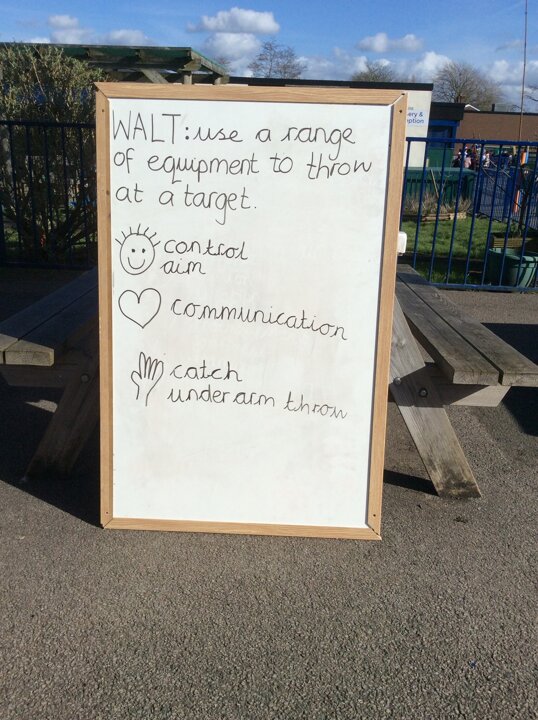 WALT: use a range
of equipment to throw
at a target.
control
aim
communication
catch
underarm throw